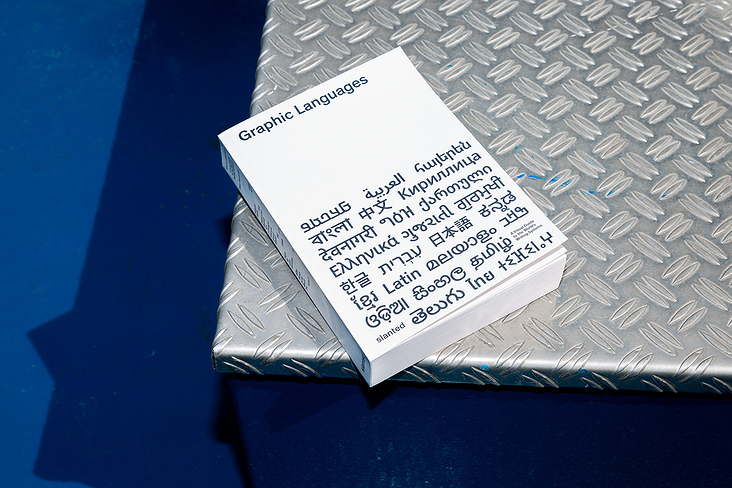 Graphic Languages
العربية հայերեն
বাংলা 中文 Кириллица
देवनागरी ᏣᎳᎩ ქართული
Ελληνικά ગુજરાતી ਗੁਰਮੁਖੀ
한글 עברית 日本語 ಕನ್ನಡ
ខ្មែរ Latin മലയാളം
ଓଡ଼ିଆ සිංහල தமிழ்
తెలుగు ไทย
A Visual Guide
to the World's
Writing Systems
slanted